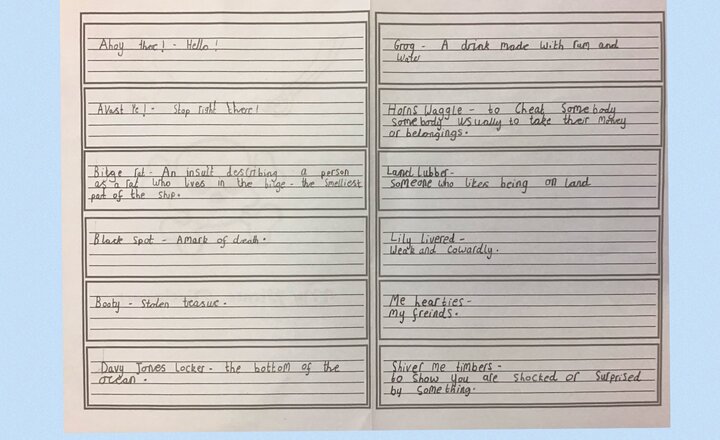 Ahoy ther! - Hello!
Avast Ye! - Stop right there!
Bilge rat - An insult describing a person
as a rat who lives in the bilge - the smelliest
part of the ship.
Black spot - A mark of death.
Booty - stolen teasue.
Davy Jones Locker - the bottom of the
ocean.
Grog - A drink made with rum and
water
Horns Waggle - to Cheat Somebody
Somebody usually to take their money
or belongings.
Land Lubber -
Someone who likes being on land
Lily Livered -
Weak and Cowardly.
Me hearties -
my freinds.
Shiver me timbers -
to show you are shocked or surprised
by something.